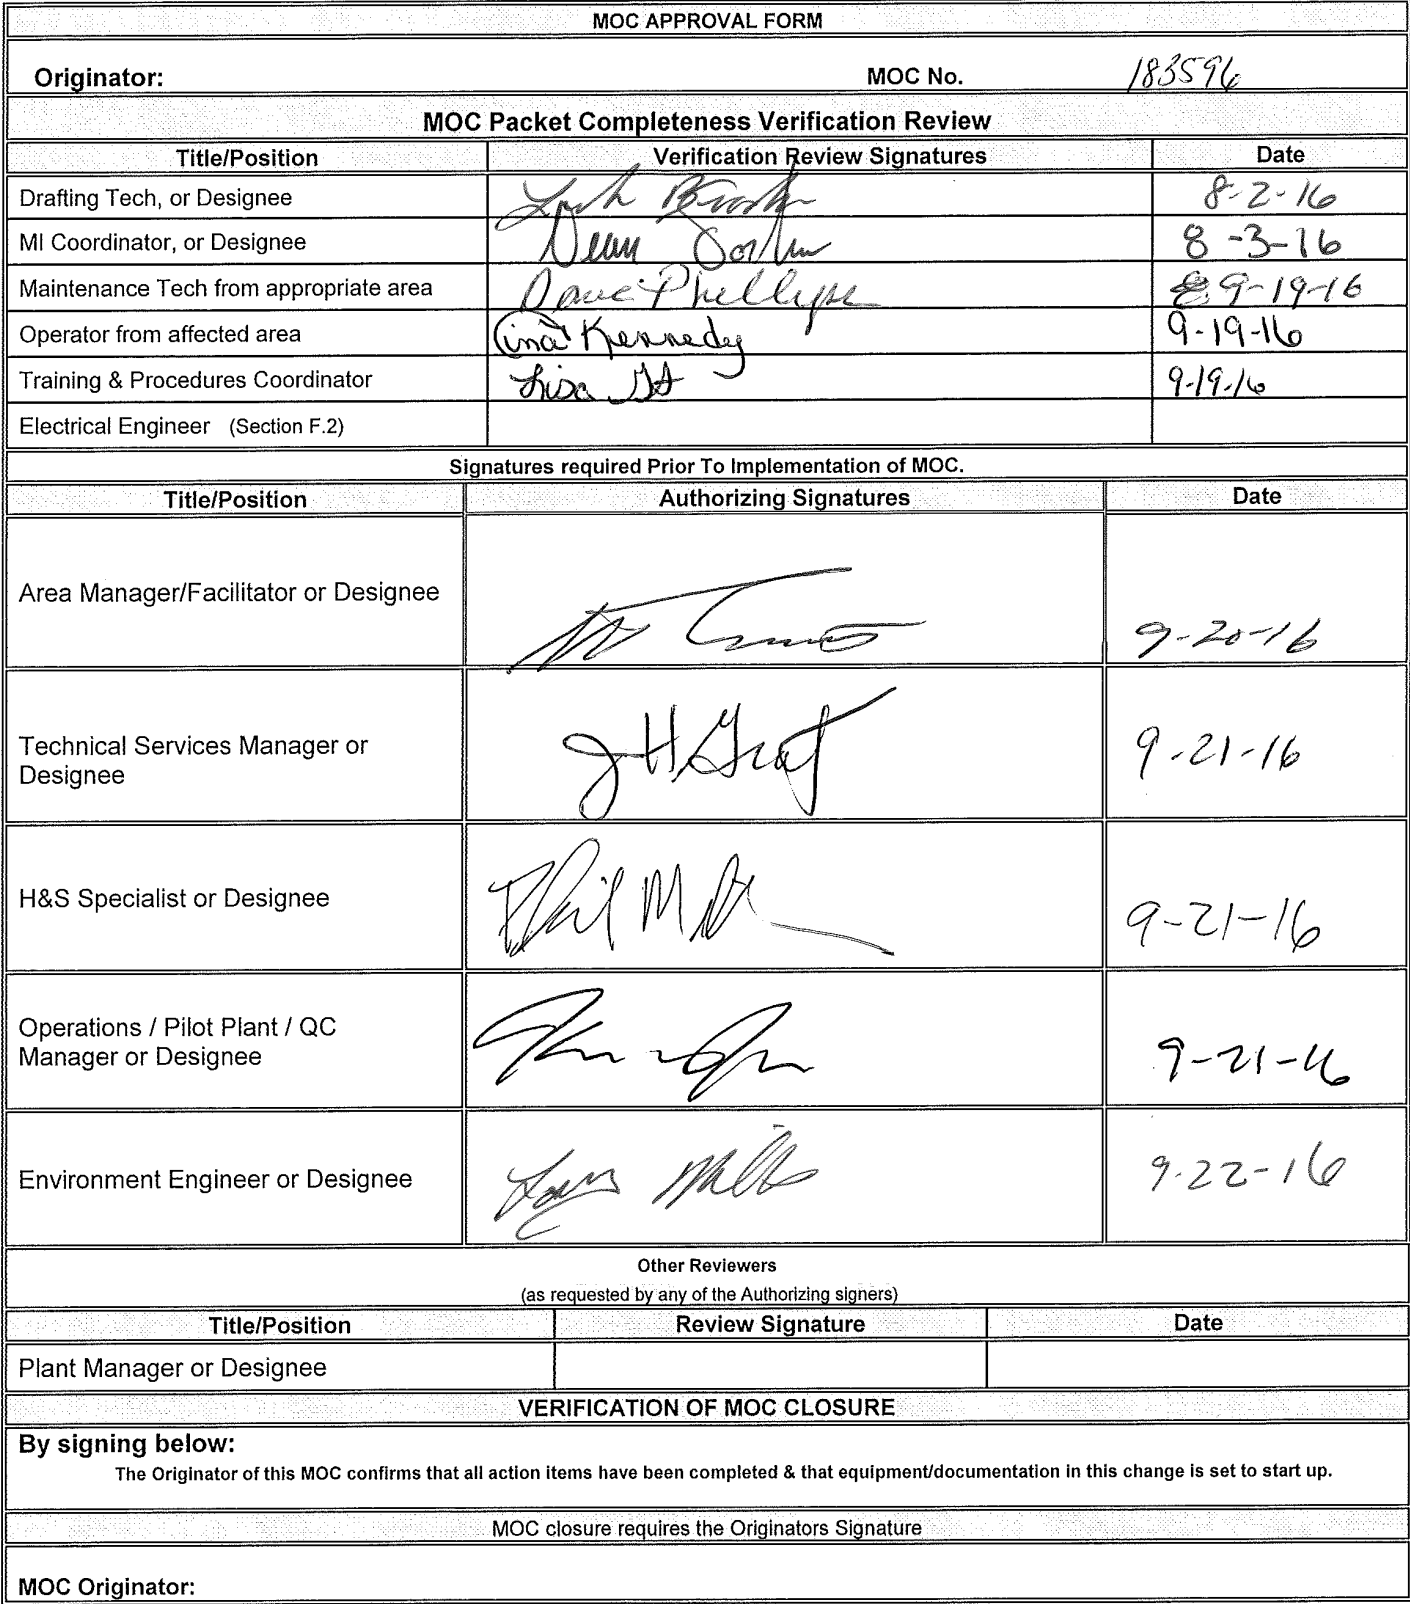 MOC APPROVAL FORM
Originator: MOC No. 183596
MOC Packet Completeness Verification Review
Title/Position Verification Review Signatures Date
Drafting Tech, or Designee 8-2-16
MI Coordinator, or Designee Dean 8-3-16
Maintenance Tech from appropriate area Dave Phellips 9-19-16
Operator from affected area Tina Kennedy 9-19-16
Training & Procedures Coordinator Lisa 9-19-16
Electrical Engineer (Section F.2)
Signatures required Prior To Implementation of MOC.
Title/Position Authorizing Signatures Date
Area Manager/Facilitator or Designee 9-20-16
Technical Services Manager or
Designee J H Graf 9-21-16
H&S Specialist or Designee Phil 9-21-16
Operations / Pilot Plant / QC
Manager or Designee 9-21-16
Environment Engineer or Designee 9-22-16
Other Reviewers
(as requested by any of the Authorizing signers)
Title/Position Review Signature Date
Plant Manager or Designee
VERIFICATION OF MOC CLOSURE
By signing below:
The Originator of this MOC confirms that all action items have been completed & that equipment/documentation in this change is set to start up.
MOC closure requires the Originators Signature
MOC Originator: